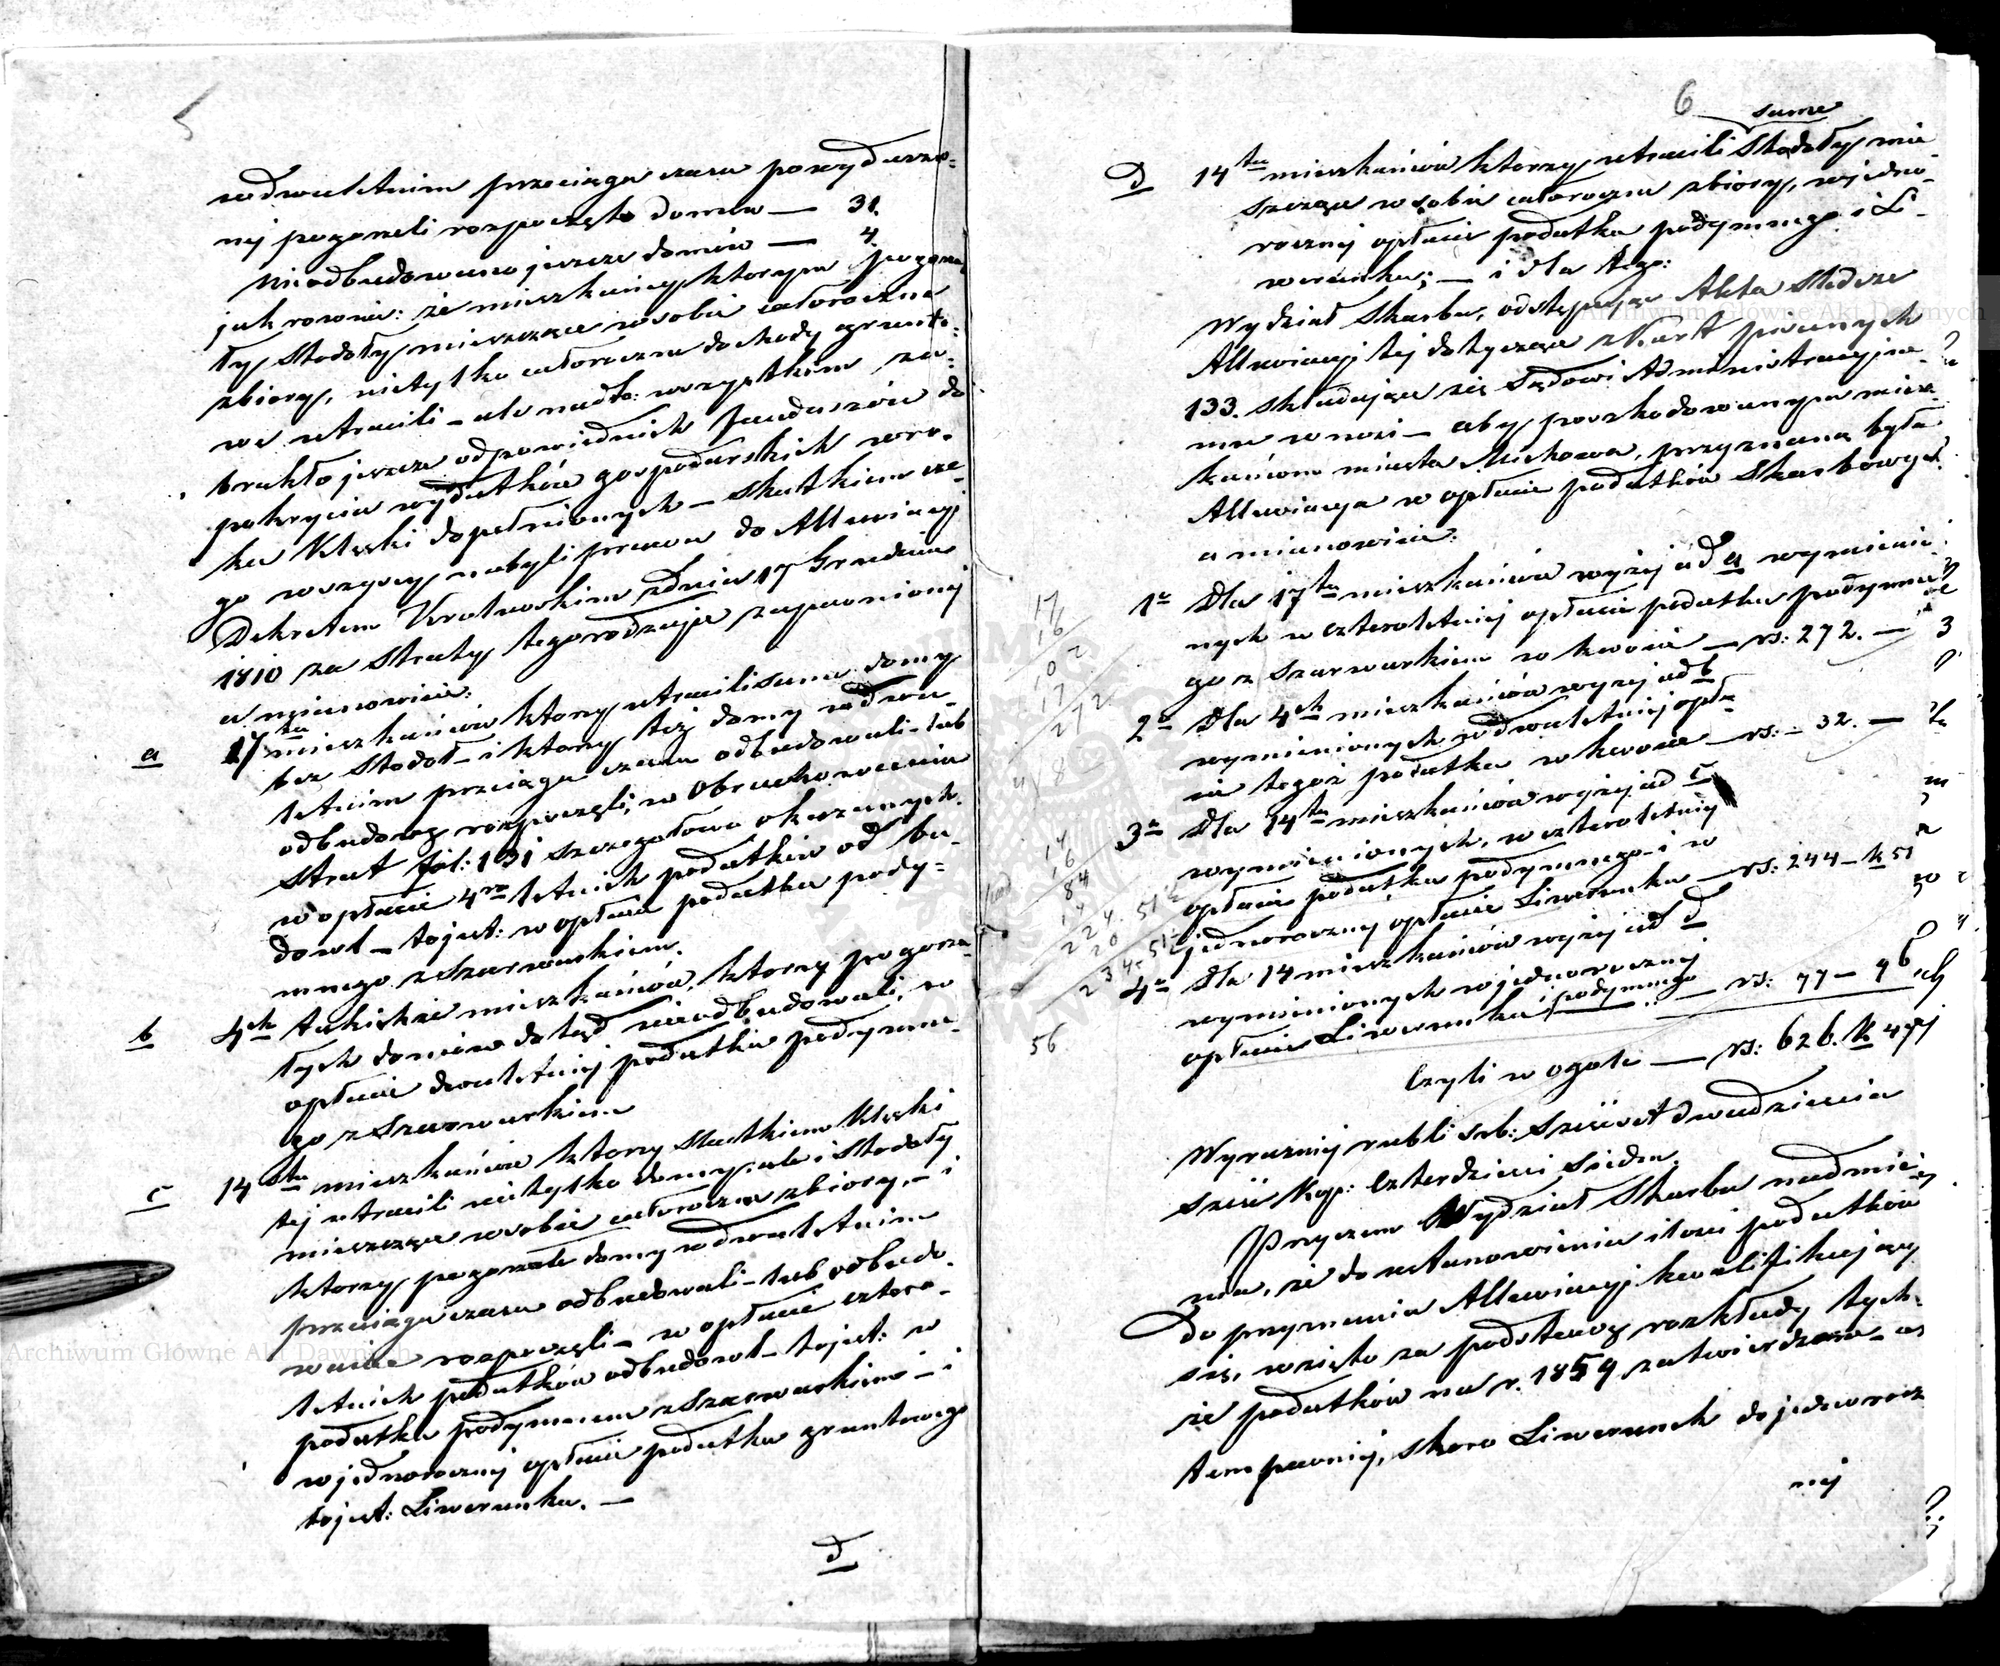 5
w dwuletnim przeciągu czasu powydarzo=
nej pogorzeli rozpoczęto domów — 31.
nieodbudowano jeszcze domów — 4.
jak rownie: że mieszkańcy którym pogorza
ły Stodoły mieszczące w sobie całoroczne
zbiory, nietylko całoroczne dochody grunto=
we utracili – ale nadto: wszystkim za=
brakło jeszcze odpowiednich funduszów do
pokrycia wydatków gospodarskich w ro=
ku Klęski dopełnionych – skutkiem cze
go wszyscy nabyli prawa do Allewiacyi
Dekretem Krolewskim z dnia 17 Grudnia
1810 za Straty tego rodzaju zapewnionej
a mianowicie:
a 17tu mieszkańców ktorzy utracili same domy
bez Stodoł – i ktorzy też domy w dwu=
letnim przeciągu czasu odbudowali – lub
odbudowę rozpoczęli, w Obrachowaniu
Strat fol: 131 szczegołowo okazanych.
w opłacie 4ro letnich podatków od bu=
dowl – to jest: w opłacie podatku pody=
mnego z Szarwarkiem.
b 4ch takichże mieszkańców, ktorzy pogorza
łych domów dotąd nieodbudowali, w
opłacie dwuletniej podatku podymne=
go z Szarwarkiem
c 14stu mieszkańców ktorzy skutkiem Klęski
tej utracili nietylko domy, ale i Stodoły
mieszczące w sobie całoroczne zbiory, – i
ktorzy pogorzałe domy w dwuletnim
przeciągu czasu odbudowali – lub odbudo=
wanie rozpoczęli – w opłacie cztero=
letnich podatków od budowl – to jest: w
podatku podymnem z Szarwarkiem – i
w jednorocznej opłacie podatku gruntowego
to jest: Liwerunku. —
d
6
same
d 14tu mieszkańców ktorzy utracili Stodoły mie
szczące w sobie całoroczne zbiory, w jedno=
rocznej opłacie podatku podymnego i Li=
werunku; — i dla tego:
Wydział Skarbu, odstępując Akta Śledcze
Allewiacyi tej dotyczące z Kart pisanych
133. składające się Sądowi Administracyjne
mu wnosi – aby poszkodowanym miesz=
kańcom miasta Miechowa, przyznaną była
Allewiacya w opłacie podatków Skarbowych
a mianowicie:
1e Dla 17tu mieszkańców wyżej ad a wymienio
nych w czteroletniej opłacie podatku podymne
go z szarwarkiem w kwocie — rs: 272. —
2e Dla 4ch mieszkańców wyżej ad b
wymienionych w dwuletniej opła=
cie tegoż podatku w kwocie — rs: – 32. —
3e Dla 14tu mieszkańców wyżej ad c
wymienionych, w czteroletniej
opłacie podatku podymnego – i w
jednorocznej opłacie Liwerunku — rs: 244 – k 51
4e Dla 14 mieszkańców wyżej ad d
wymienionych w jednorocznej
opłacie Liwerunku i podymnego — rs: 77 – 96
Czyli w ogole — rs: 626. k 47
Wyrazniej rubli srb: Sześćset dwadzieścia
sześć kop: czterdzieści siedm.
Przyczem Wydział Skarbu nadmie=
nia, że do ustanowienia ilości podatków
do przyznania Allewiacyi kwalifikujący
się, wzięto za podstawę rozkłady tych
że podatków na r. 1859 zatwierdzone – a
tem pewniej, skoro Liwerunek do jednorocz
nej
17
16
102
17
272
4/8
14
16
84
14
224. 51½
20
234. 51½
56